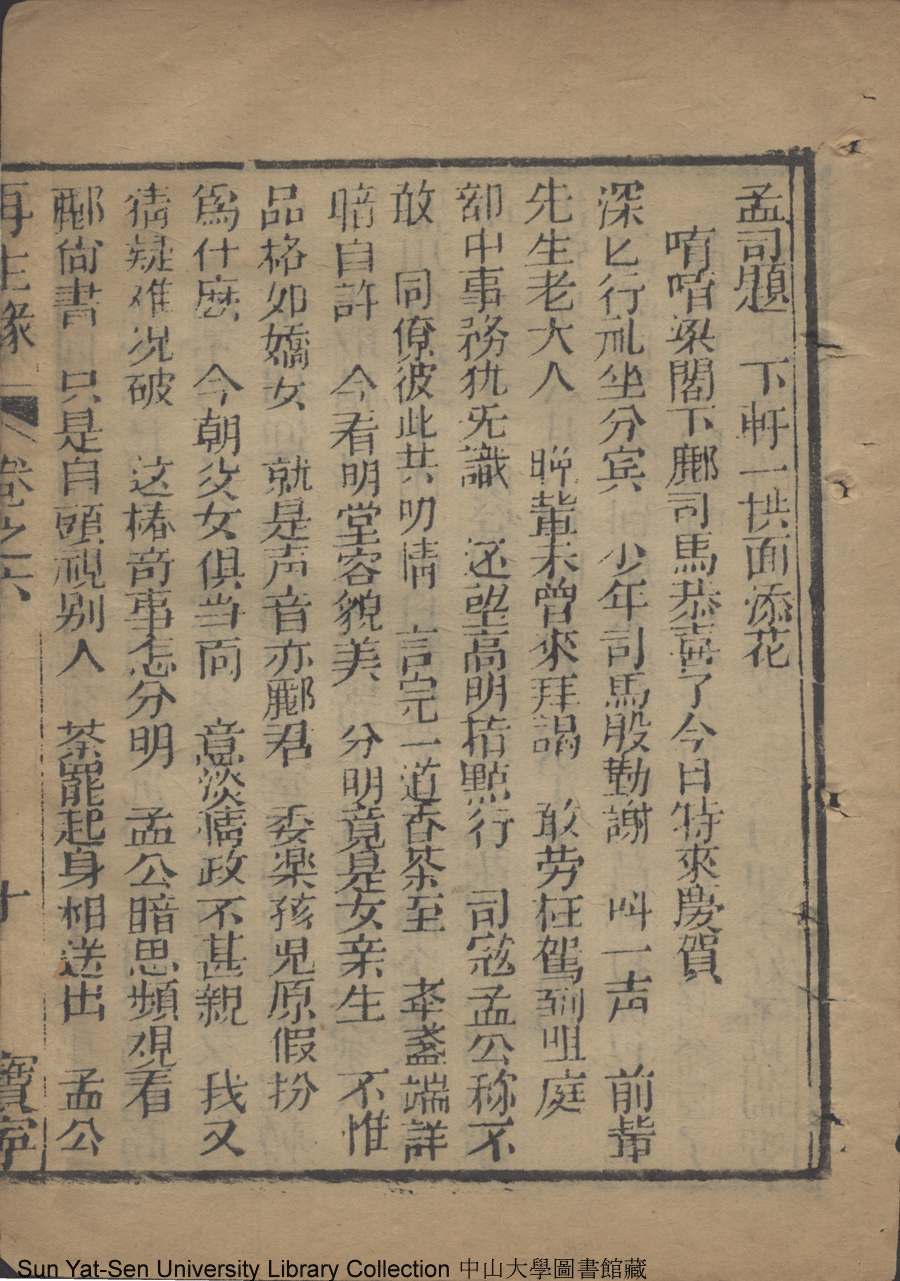 孟司題　下軒一拱面添花
唷唷梁閣下酈司馬恭喜了今日特來慶賀
深匕行礼坐分宾　少年司馬殷勤謝　叫一声　前輩
先生老大人　晚輩未曾來拜謁　敢劳枉駕到咀庭
部中事務犹旡識　还望高明㨂點行　司寇孟公称不
敢　同僚彼此共叨情　言完一道香茶至　奉盞端詳
暗自許　今看明堂容貌美　分明竟是女亲生　不惟
品格如嬌女　就是声音亦酈君　委楽孩児原假扮
爲什麽　今朝父女俱当面　意淡情政不甚親　我又
猜疑难况破　这樁奇事怎分明　孟公暗思頻观看
酈尙書　只是自頭視别人　茶罷起身相送出　孟公
再生緣　卷之六　十　寳寧
Sun Yat-Sen University Library Collection 中山大學圖書館藏